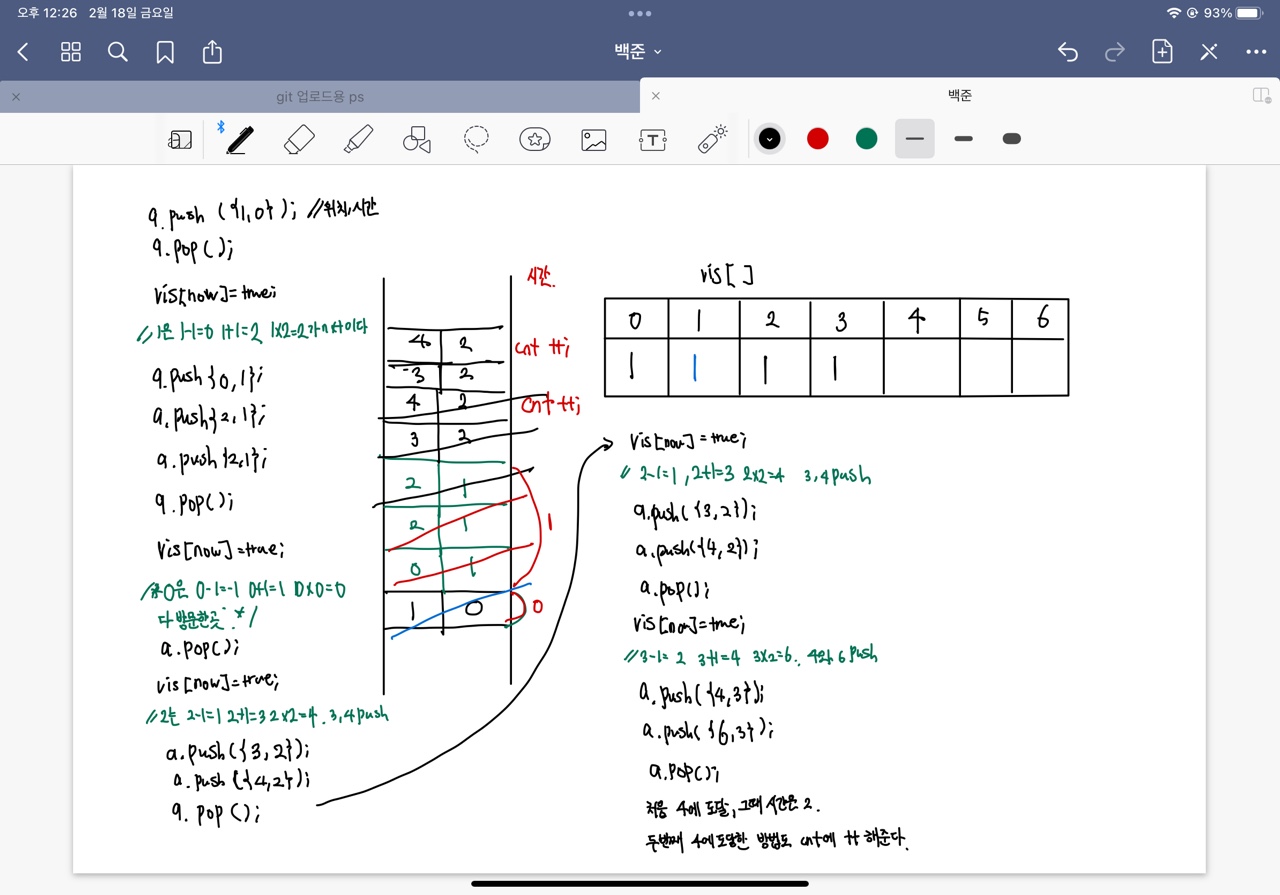 오후 12:26 2월 18일 금요일
93%
백준
git 업로드용 ps
백준
q.push ({1,0}); //위치,시간
q.pop();
vis[now]=true;
//1은 1-1=0 1+1=2 1x2=2가 n x이다
q.push{0,1};
q.push{2,1};
q.push{2,1};
q.pop();
vis[now]=true;
/*0은 0-1=-1 0+1=1 0x0=0
다 방문한곳 */
q.pop();
vis[now]=true;
//2는 2-1=1 2+1=3 2x2=4. 3,4 push
q.push({3,2});
q.push({4,2});
q.pop();
시간.
4 2 cnt ++;
3 2
4 2 cnt ++;
3 2
2 1
2 1 1
0 1
1 0 0
vis[]
0 1 2 3 4 5 6
1 1 1 1
vis[now]=true;
// 2-1=1, 2+1=3 2x2=4 3,4 push
q.push({3,2});
q.push({4,2});
q.pop();
vis[now]=true;
//3-1=2 3+1=4 3x2=6. 4와 6 push
q.push({4,3});
q.push({6,3});
q.pop();
처음 4에 도달, 그때 시간은 2.
두번째 4에 도달한 방법도 cnt에 ++ 해준다.